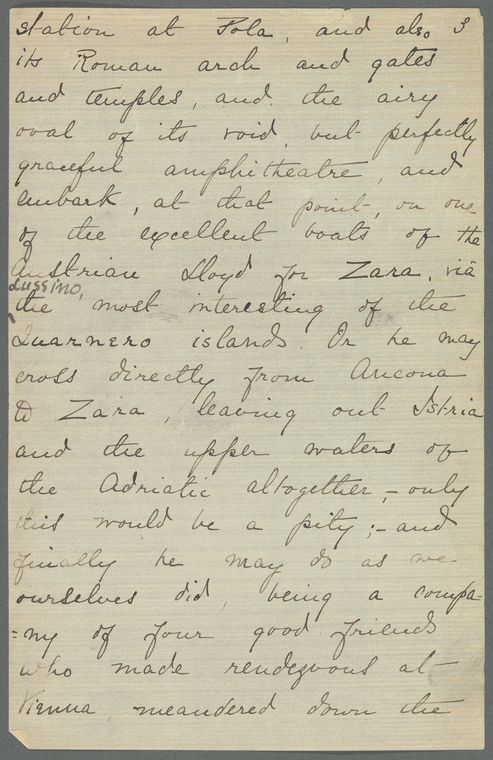 station at Pola, and also 3
its Roman arch and gates
and temples, and the airy
oval of its void, but perfectly
graceful amphitheatre, and
embark, at that point, on one
of the excellent boats of the
Austrian Lloyd for Zara, viâ
Lussino,
the most interesting of the
Quarnero islands. Or he may
cross directly from Ancona
to Zara, leaving out Istria
and the upper waters of
the Adriatic altogether, – only
this would be a pity; – and
finally he may do as we
ourselves did, being a compa=
=ny of four good friends
who made rendezvous at
Vienna, meandered down the